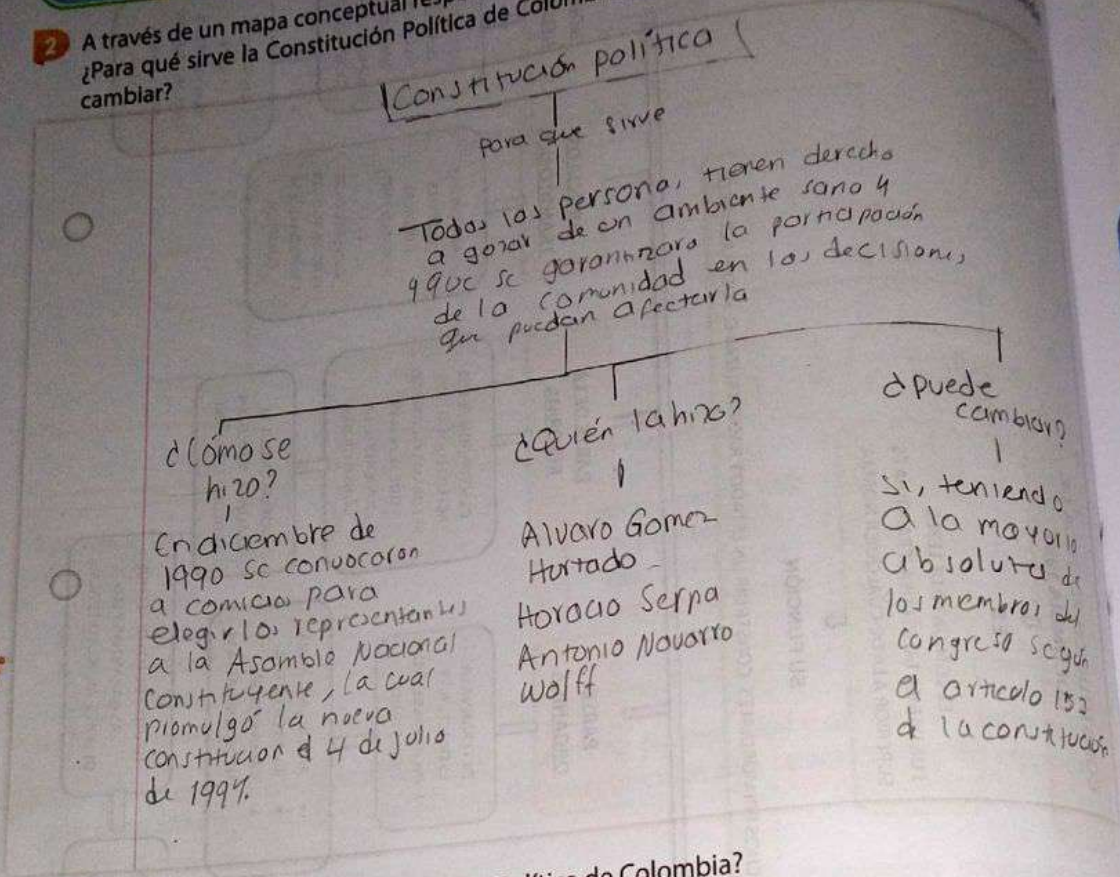 2 A través de un mapa conceptual
¿Para qué sirve la Constitución Política de
cambiar?
Constitución política
para que sirve
Todas las persona, tienen derecho
a gozar de un ambiente sano y
que se garantizara la participación
de la comunidad en las decisiones
que puedan afectarla
¿Cómo se
hizo?
En diciembre de
1990 se convocaron
a comicios para
elegir los representantes
a la Asamble Nacional
constituyente, la cual
promulgó la nueva
constitucion el 4 de julio
de 1991.
¿Quién la hizo?
Alvaro Gomez
Hurtado
Horacio Serpa
Antonio Navarro
Wolff
¿puede
cambiar?
si, teniendo
a la mayoria
absoluta de
los miembros del
congreso según
el articulo 152
de la constitución
de Colombia?